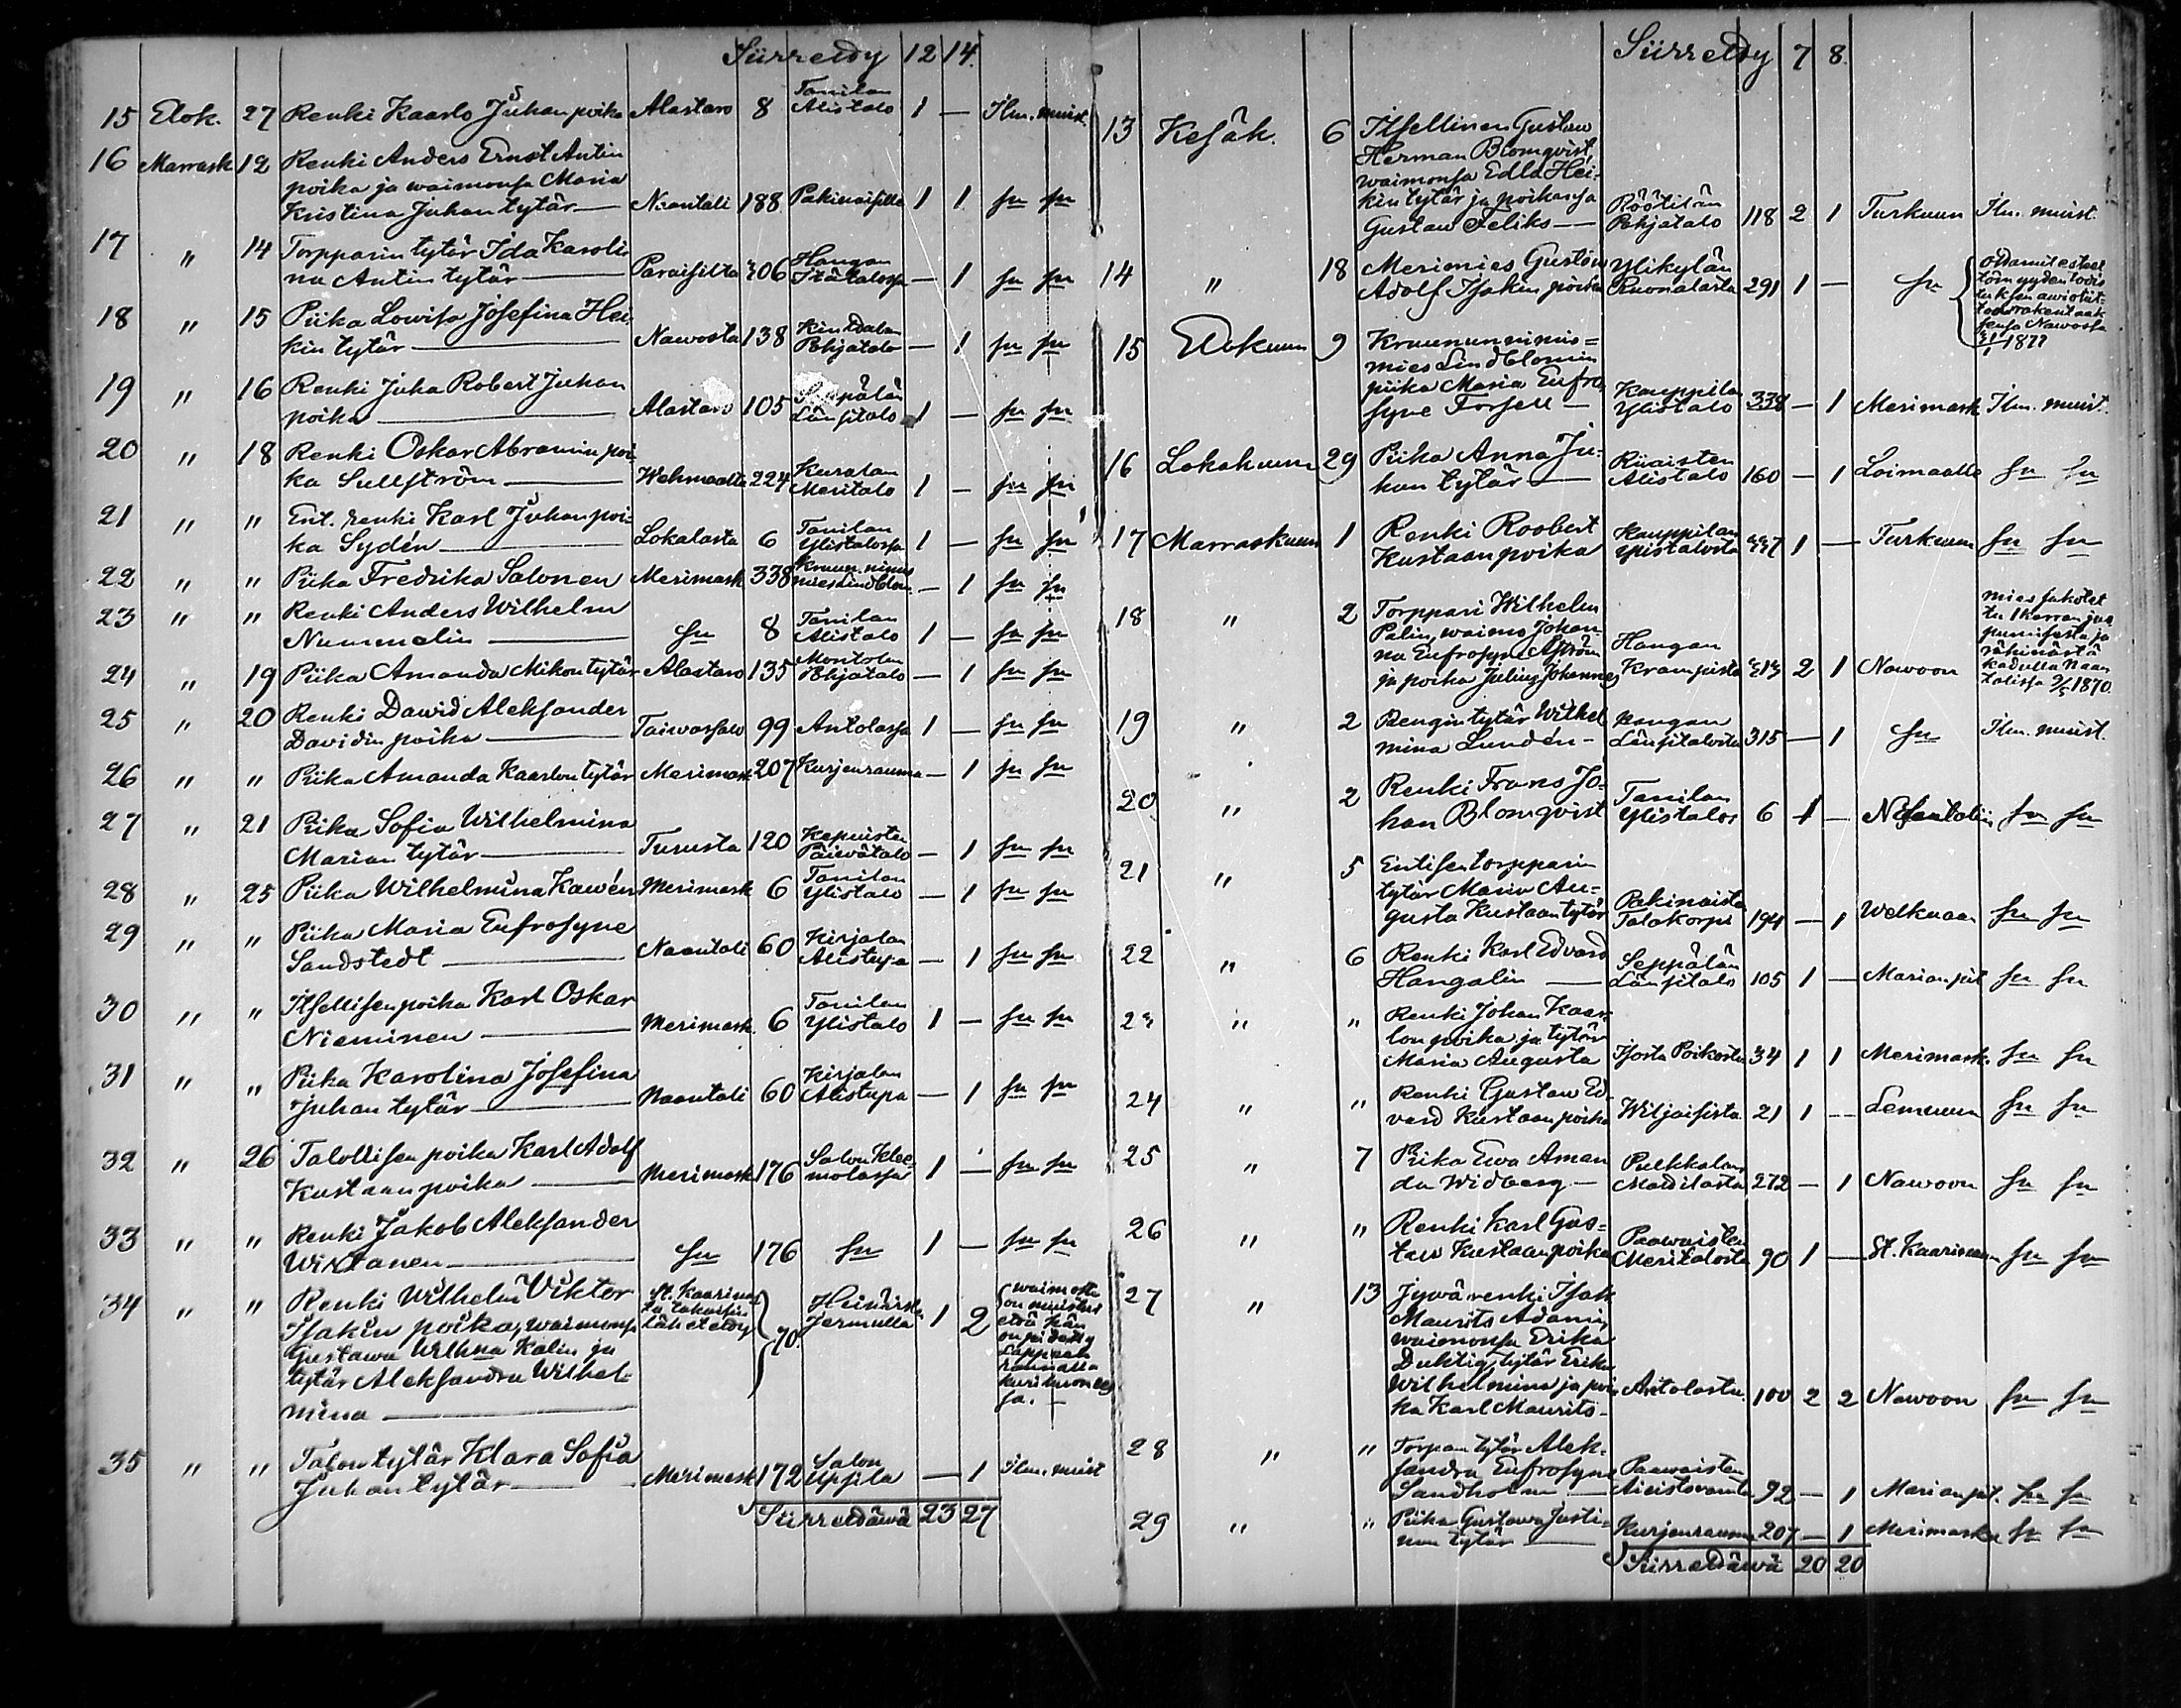 Siirretdy 12 14.
15 Elok. 27 Renki Kaarlo Juhan poika Alastaro 8 Tanilan Alistalo 1 — Ilm. muist.
16 Marrask 12 Renki Anders Ernst Antin
poika ja waimonsa Maria
Kristina Juhan tytär — Naantali 188 Pakinaisilla 1 1 sn sn
17 " 14 Torpparin tytär Ida Karoli-
na Antin tytär — Paraisilta 306 Hangan Itätalossa — 1 sn sn
18 " 15 Piika Lowisa Josefina Hei-
kin tytär — Nawosta 138 Kindalan Pohjatalo — 1 sn sn
19 " 16 Renki Juha Robert Juhan
poika — Alastaro 105 Seppälän Länsitalo 1 — sn sn
20 " 18 Renki Oskar Abramin poi-
ka Sullström — Wehmaalta 224 Kuralan Meritalo 1 — sn sn
21 " " Ent. renki Karl Juhan poi-
ka Sydén — Lokalasta 6 Tanilan Ylistalossa 1 — sn sn
22 " " Piika Fredrika Salonen Merimask 338 Kruun. nimismies Lindblom — 1 sn sn
23 " " Renki Anders Wilhelm
Nummelin — sn 8 Tanilan Alistalo 1 — sn sn
24 " 19 Piika Amanda Mikon tytär Alastaro 135 Pohjatalo — 1 sn sn
25 " 20 Renki Dawid Aleksander
Davidin poika — Taiwassalo 99 Antolassa 1 — sn sn
26 " " Piika Amanda Kaarlon tytär Merimask 207 Kurjenrauma — 1 sn sn
27 " 21 Piika Sofia Wilhelmina
Marian tytär — Turusta 120 Päiwätalo — 1 sn sn
28 " 25 Piika Wilhelmina Kawén Merimask 6 Tanilan Ylistalo — 1 sn sn
29 " " Piika Maria Eufrosyne
Sandstedt — Naantali 60 Kirjalan Alistupa — 1 sn sn
30 " " Itsellisen poika Karl Oskar
Nieminen — Merimask 6 Tanilan Ylistalo 1 — sn sn
31 " " Piika Karolina Josefina
Juhan tytär — Naantali 60 Kirjalan Alistupa — 1 sn sn
32 " 26 Talollisen poika Karl Adolf
Kustaan poika — Merimask 176 Salon Kleemolassa 1 — sn sn
33 " " Renki Jakob Aleksander
Wirtanen — sn 176 sn 1 — sn sn
34 " " Renki Wilhelm Viktor
Isakin poika, waimonsa
Gustawa Wilhna Kalin ja
tytär Aleksandra Wilhel-
mina — St. Kaarinasta takaisin lähetetty 70. Jermulla 1 2 waimosta on muistus että hän on pidetty Lappeenrannalla kurihuoneessa.
35 " " Talon tytär Klara Sofia
Juhan tytär — Merimask 172 Salon Uppila — 1 Ilm. muist
Siirrettäwä 23 27
Siirretdy 7 8.
13 Kesäk. 6 Itsellinen Gustaw
Herman Blomqvist,
waimonsa Edla Hei-
kin tytär ja poikansa
Gustaw Feliks — Röötilän Pohjatalo 118 2 1 Turkuun Ilm. muist.
14 " 18 Merimies Gustaw
Adolf Isakin poika Ylikylän Ruonalasta 291 1 — sn
15 Elokuun 9 Kruununnimis=
mies Lindblomin
piika Maria Eufro-
syne Forsell — Kauppilan Ylistalo 338 — 1 Merimask Ilm. muist.
16 Lokakuun 29 Piika Anna Ju-
han tytär — Riiaisten Alistalo 160 — 1 Loimaalle sn sn
17 Marraskuun 1 Renki Roobert
Kustaan poika Kauppilan Ylistalosta 337 1 — Turkuun sn sn
18 " 2 Torppari Wilhelm
Palin, waimo Johan-
na Eufrosyne Aström
ja poika Julius Johannes Hangan Krampista 313 2 1 Nawoon
19 " 2 Rengin tytär Wilhel
mina Lundén — Hangan Länsitalosta 315 — 1 sn Ilm. muist.
20 " 2 Renki Frans Jo-
han Blomqvist Tanilan Ylistalos 6 1 — Naantaliin sn sn
21 " 5 Entisen torpparin
tytär Maria Au-
gusta Kustaan tytär Pakinaista Talokorpi 194 — 1 Welkuaan sn sn
22 " 6 Renki Karl Edvard
Hangelin — Seppälän Länsitalo 105 1 — Marian pit sn sn
23 " " Renki Johan Kaar-
lon poika ja tytär
Maria Augusta Isosta Poikosta 34 1 1 Merimask. sn sn
24 " " Renki Gustaw Ed-
vard Kustaan poika Wiljaisista 21 1 — Lemuun sn sn
25 " 7 Piika Ewa Aman
da Widberg — Pulkkalan Mattilasta 272 — 1 Nawoon sn sn
26 " " Renki Karl Gus=
taw Kustaan poika Paawaisten Meritalosta 90 1 — St. Kaarinaan sn sn
27 " 13 Jywärenki Isak
Maurits Adamin,
waimonsa Erika
Duktig, tytär Erika
Wilhelmina ja poi-
ka Karl Maurits — Antolasta 100 2 2 Nawoon sn sn
28 " " Torpan tytär Alek-
sandra Eufrosyne
Sandholm — Paawaisten 92 — 1 Marian pit. sn sn
29 " " Piika Gustawa Justi-
nan tytär — Kurjenrauma 207 — 1 Merimasku sn sn
Siirrettäwä 20 20